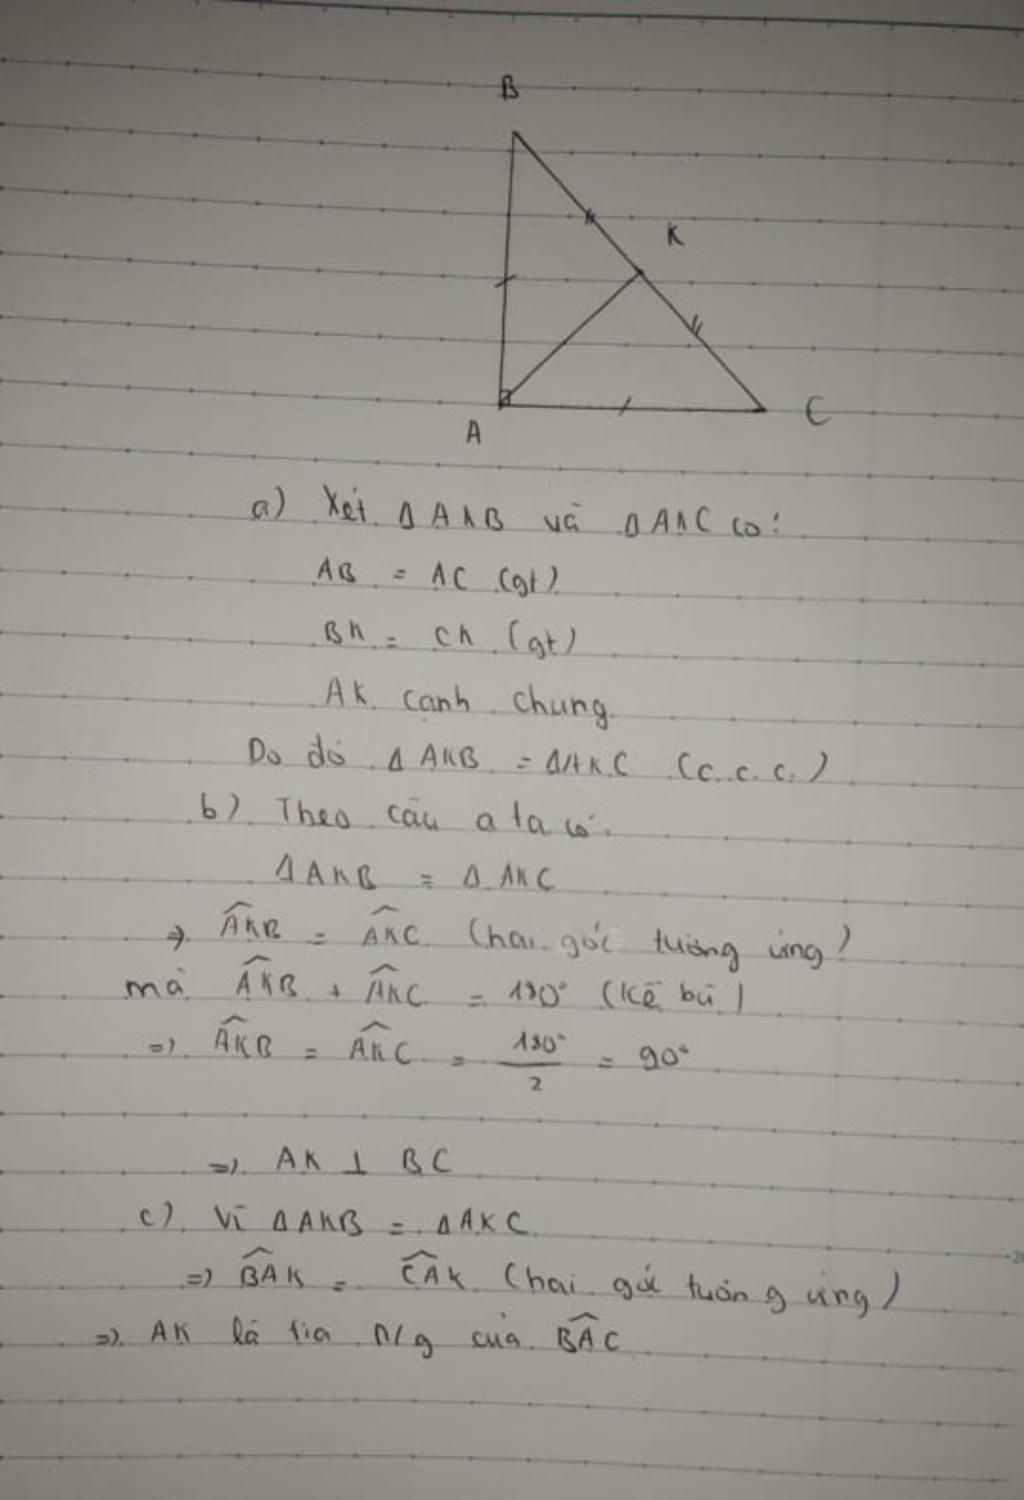 B
K
A
C
a) Xét ΔAKB và ΔAKC có:
AB = AC (gt)
BK = CK (gt)
AK cạnh chung
Do đó ΔAKB = ΔAKC (c.c.c.)
b) Theo câu a ta có.
ΔAKB = ΔAKC
=> \widehat{AKB} = \widehat{AKC} (hai góc tương ứng)
mà \widehat{AKB} + \widehat{AKC} = 180° (kề bù)
=> \widehat{AKB} = \widehat{AKC} = \frac{180°}{2} = 90°
=> AK ⊥ BC
c) Vì ΔAKB = ΔAKC
=> \widehat{BAK} = \widehat{CAK} (hai góc tương ứng)
=> AK là tia p/g của \widehat{BAC}